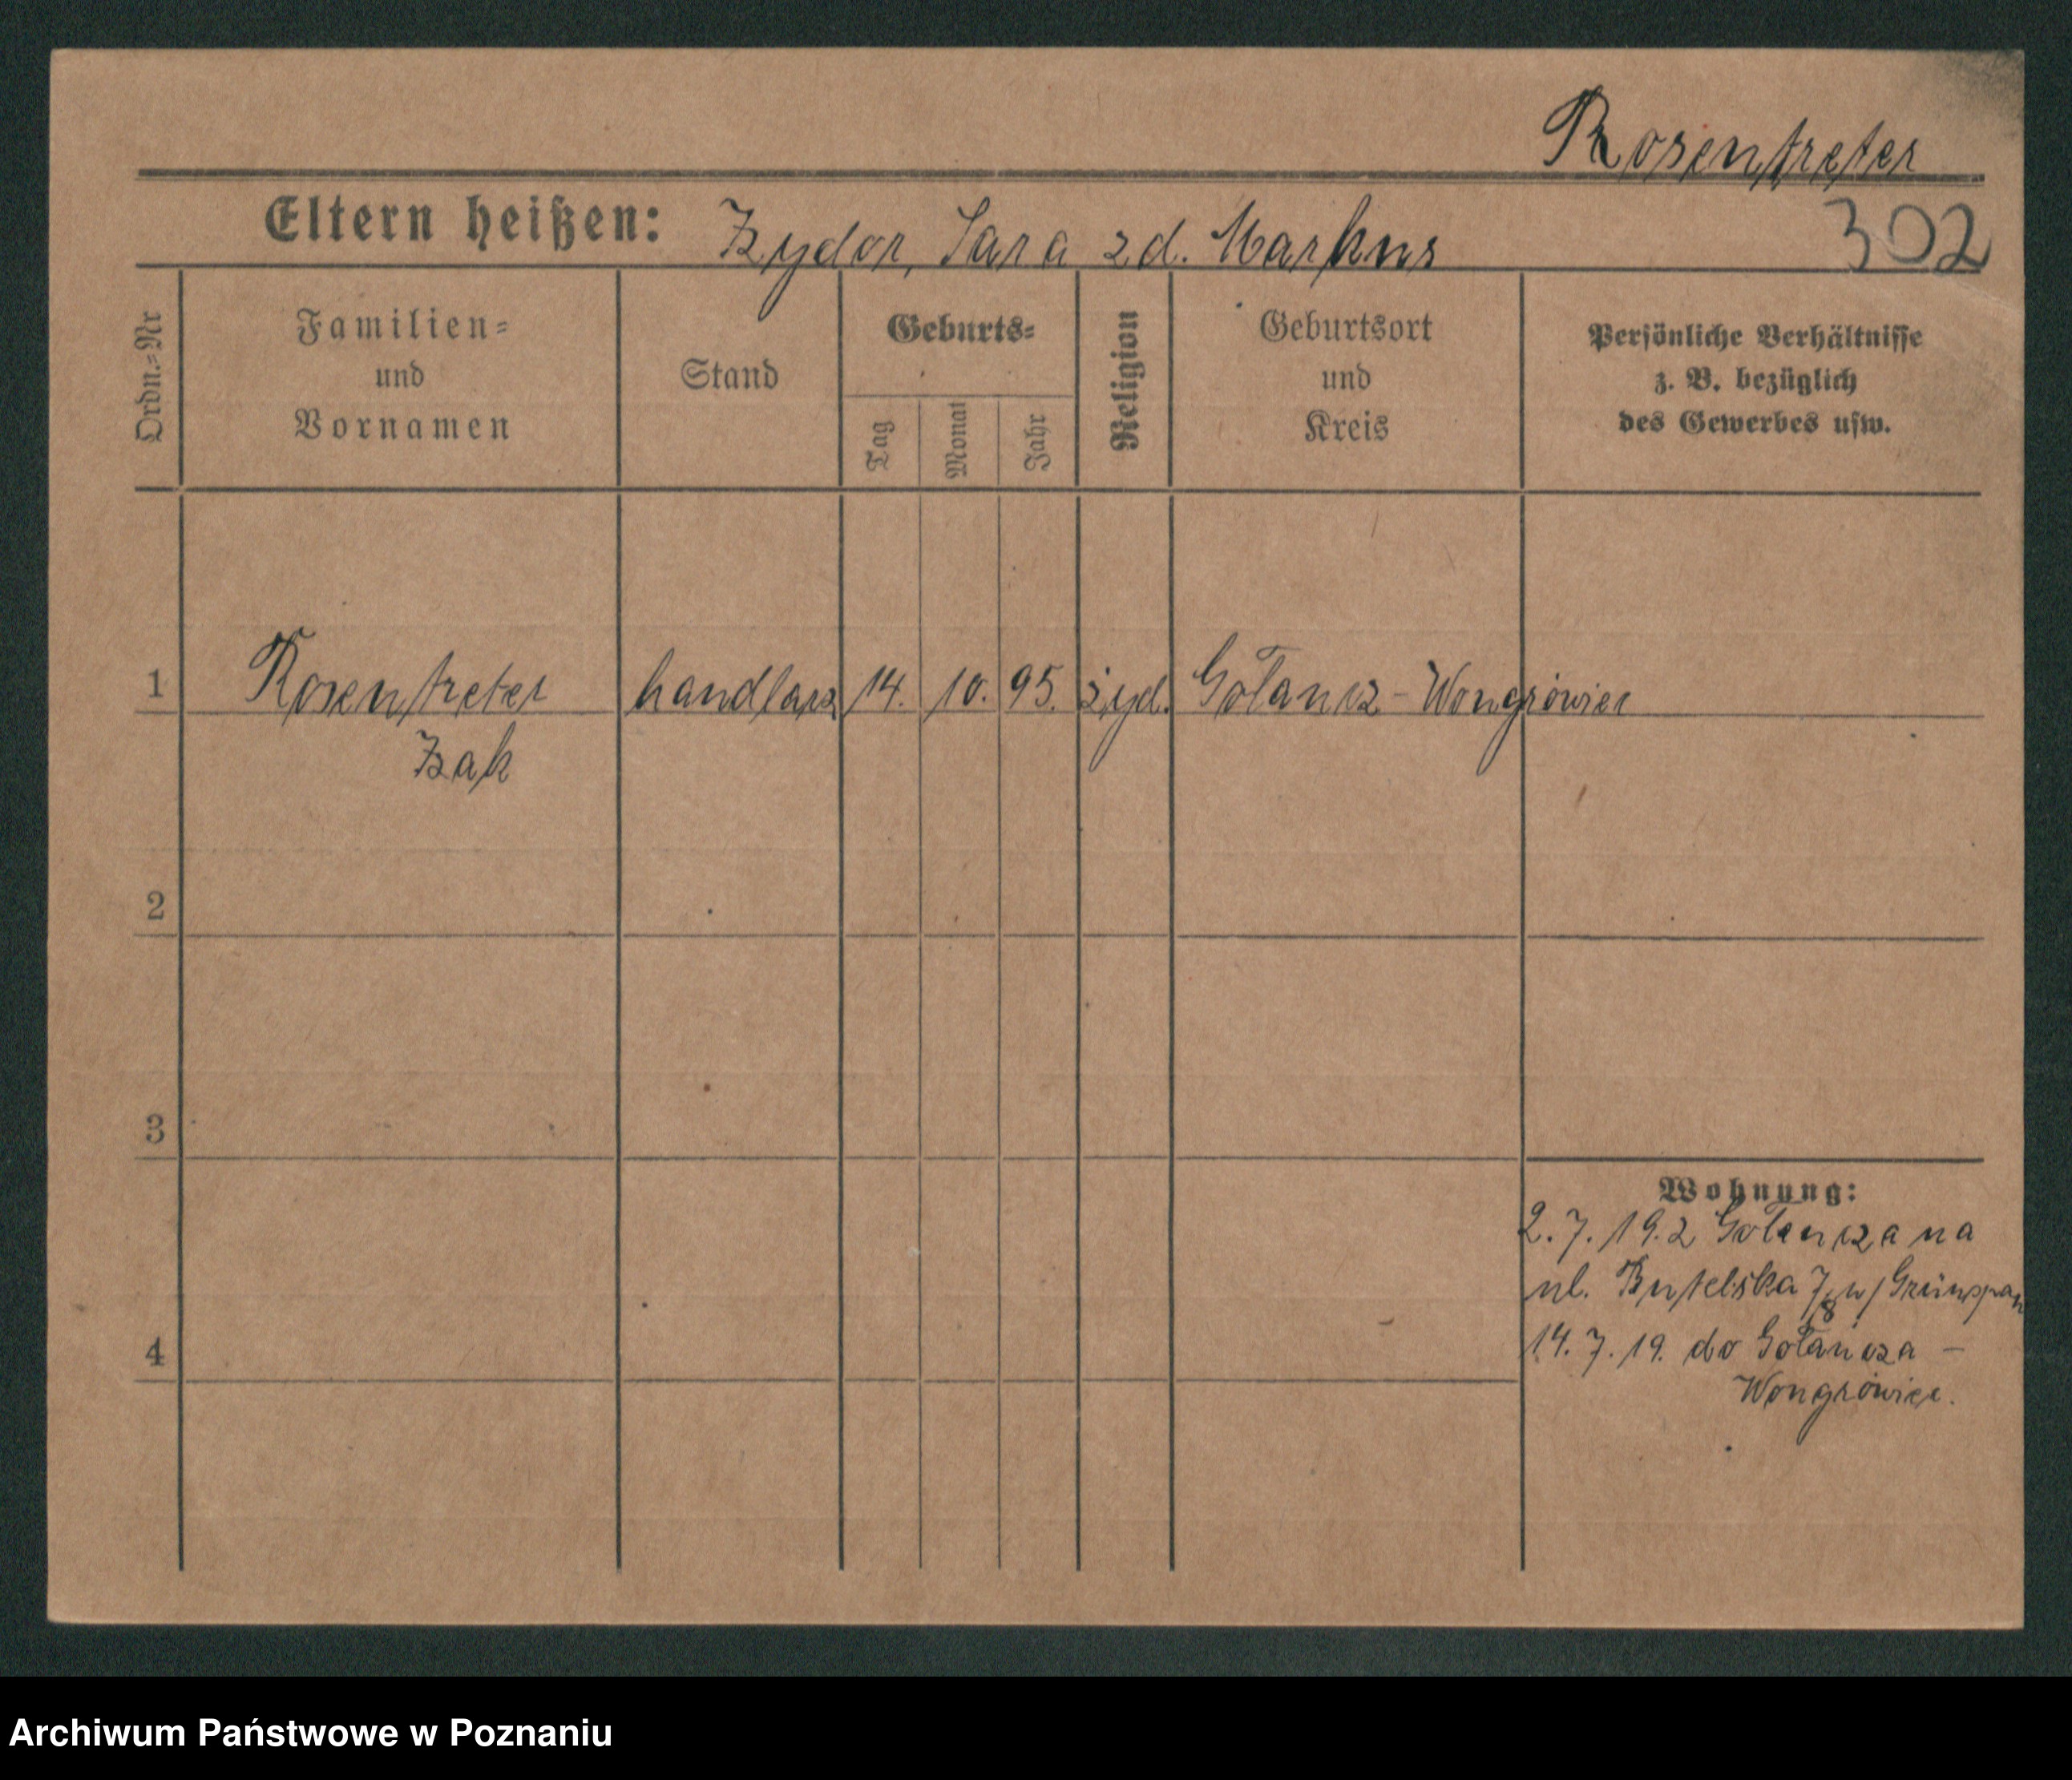 Rosentreter
Eltern heißen: Izydor, Sara zd. Markus 302
Ordn.=Nr
Familien=
und
Vornamen
Stand
Geburts=
Tag
Monat
Jahr
Religion
Geburtsort
und
Kreis
Persönliche Verhältnisse
z. B. bezüglich
des Gewerbes usw.
1 Rosentreter handlarz 14. 10. 95. żyd. Gołańcz - Wongrówiec
Izak
2
3
4
Wohnung:
2.7.19. z Gołańcza na
ul. Butelska 7/8 u/ Grünspan
14.7.19. do Gołańcza -
Wongrówiec.
Archiwum Państwowe w Poznaniu